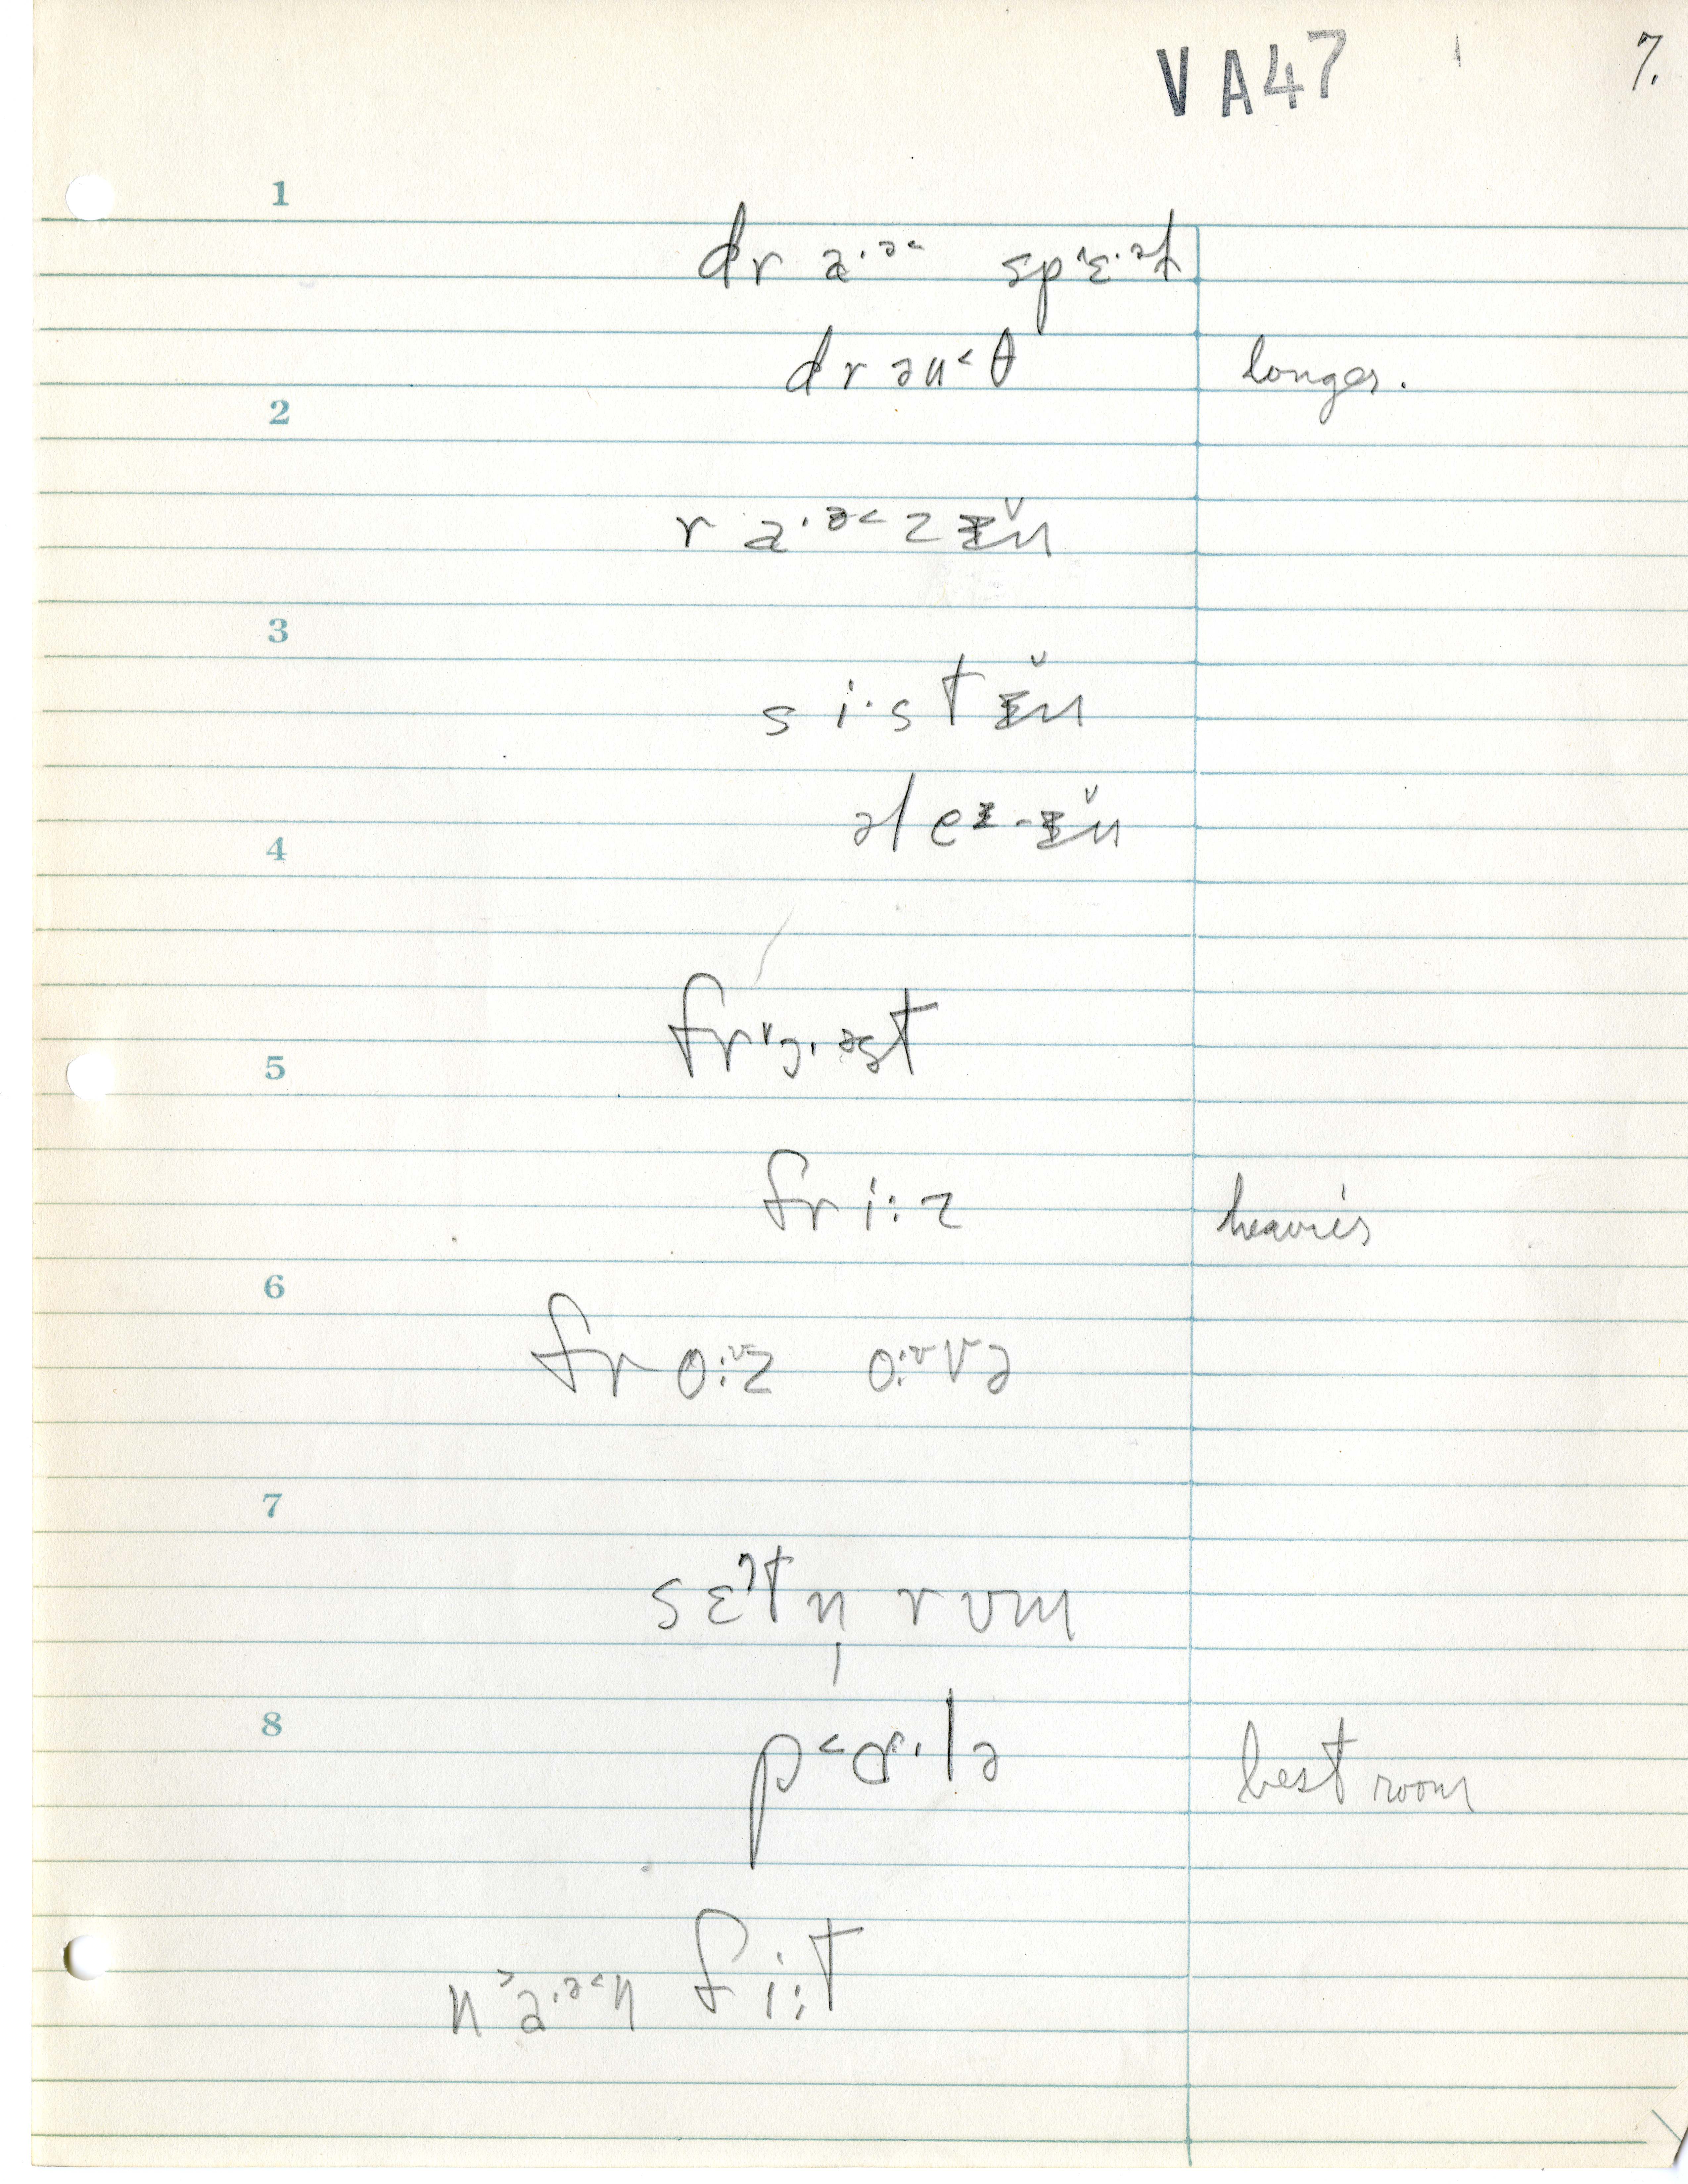 VA47 7.
1
dr a·ᵊ˂ spˈɛ·ᵊt
drəu˂θ longer.
2
r a·ᵊ˂zɨ̆n
3
si·stɨ̆n
əlɛᶤ-ɨ̆n
4
frˇɔ·əst
5
fri:z heavier
6
fro:ᶷz o:ᶷvə
7
sɛᵊtn̩ rʊm
8
p˂ɑ·lə best room
n˃a·ᵊ˂n fi:t